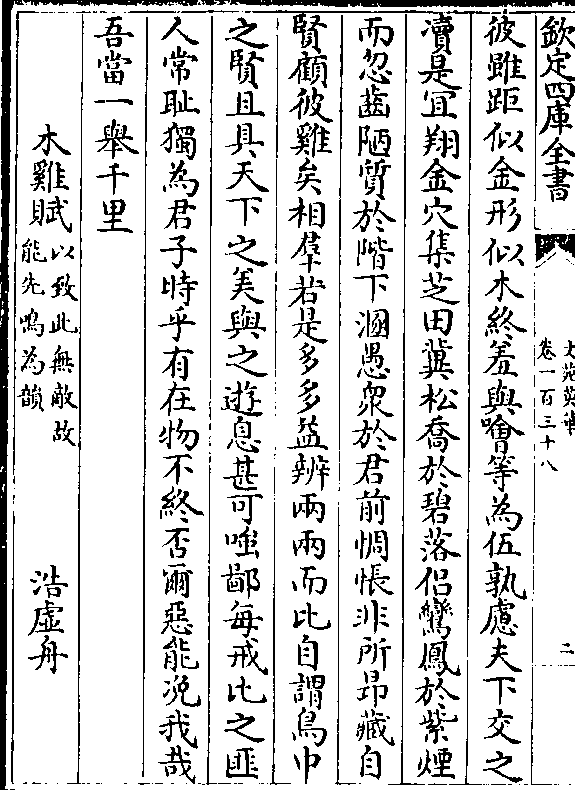 欽定四庫全書
文苑英華
卷一百三十八
二
彼雖距似金形似木終羞與噲等為伍孰慮夫下交之
凟是宜翔金穴集芝田冀松喬於碧落侣鸞鳳於紫煙
而忽齒陋質於階下溷愚衆於君前惆悵非所昂藏自
賢顧彼雞矣相羣若是多多益辨兩兩而比自謂鳥中
之賢且具天下之美與之遊息甚可嗤鄙每戒比之匪
人常恥獨為君子時乎有在物不終否爾惡能况我哉
吾當一舉千里
木雞賦以致此無敵故
能先鳴為韻
浩虚舟